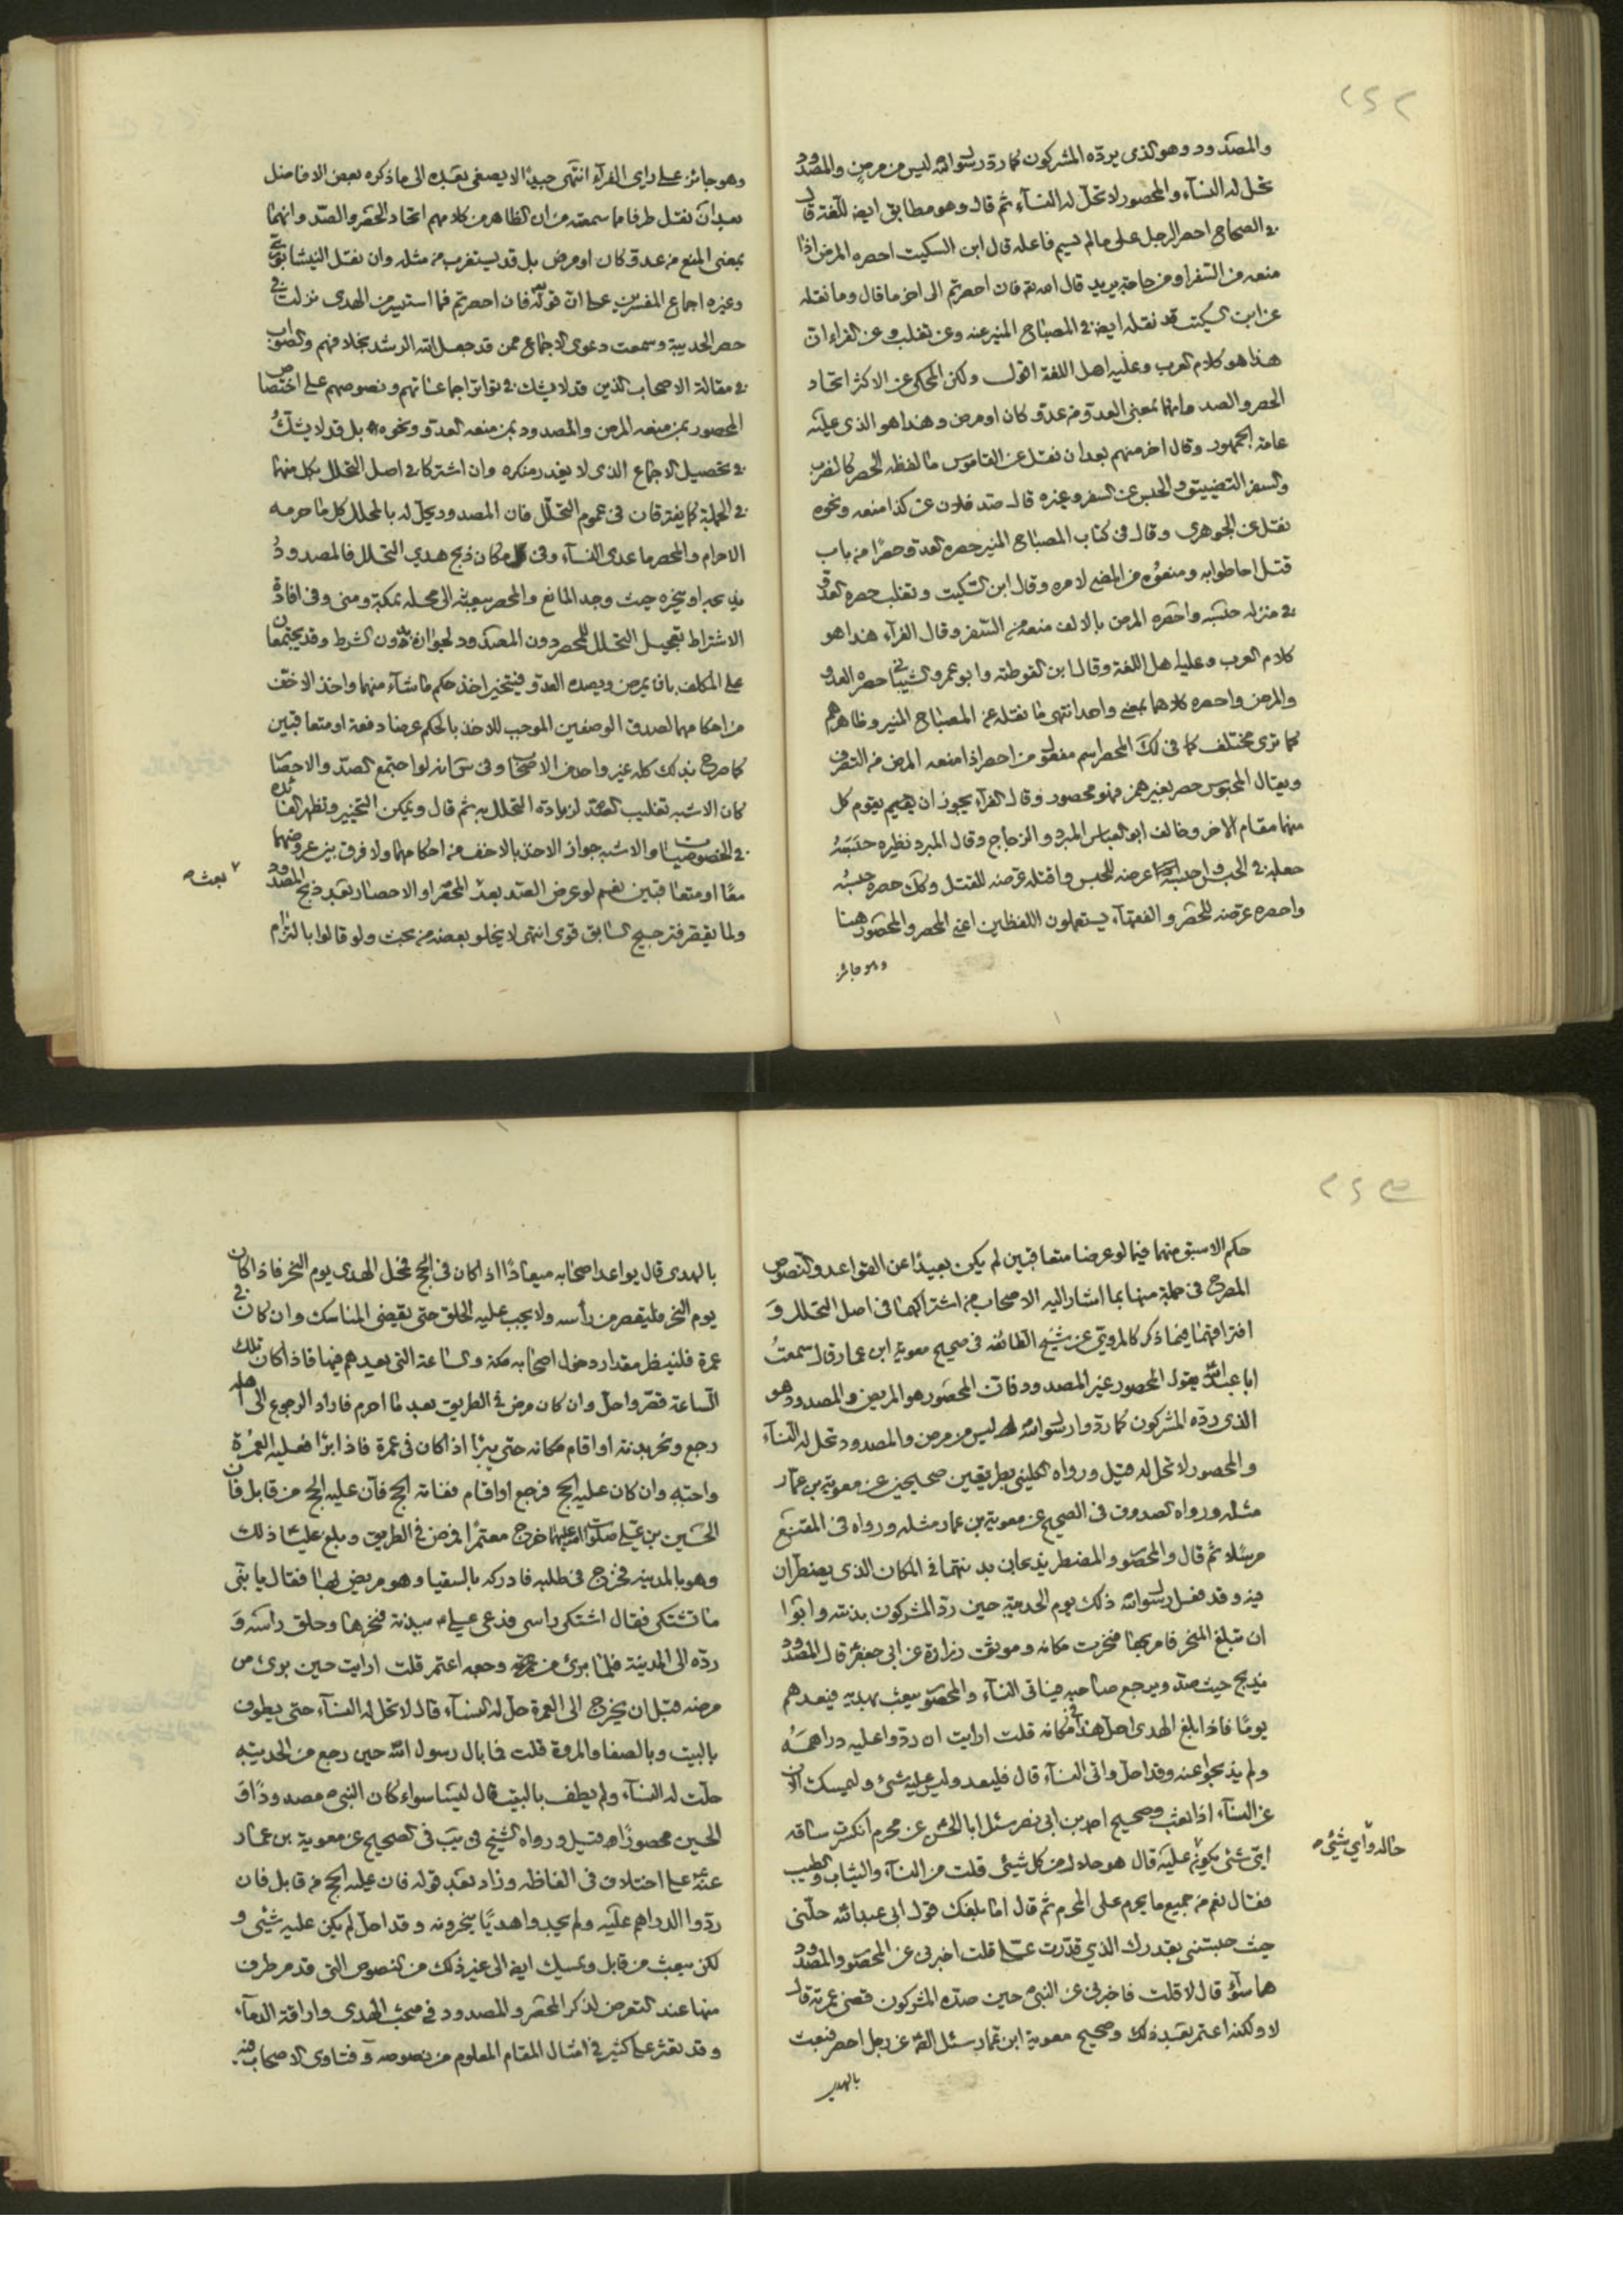 ٢٥٢
والمصدود وهو الذى يردّه المشركون كما ردّ رسول الله ليس من مرض والمصدود
تحل له النسآء والمحصور لا تحل له النسآء ثم قال وهو مطابق ايضا للغة قال
فى الصحاح احصر الرجل على ما لم يسم فاعله قال ابن السكيت احصره المرض اذا
منعه من السفر او من حاجة يريد قال الله تع فان احصرتم الى اخر ما قال وما نقله
عن ابن السكيت قد نقله ايضا فى المصباح المنير عنه وعن تغلب وعن الفراء ان
هذا هو كلام العرب وعليه اهل اللغة اقول ولكن المحكى عن الاكثر اتحاد
الحصر والصد وانهما بمعنى العدو من عدو كان او مرض وهذا هو الذى عليه
عامة الجمهور وقال اخر منهم بعد ان نقل عن القاموس ما لفظه الحصر كالضرب
والسفر التضييق والحبس عن السفر وغيره قال صد فلون عن كذا منعه ونحوه
نقل عن الجوهرى وقال فى كتاب المصباح المنير حصره العدو حصرًا من باب
قتل احاطوا به ومنعوه من المضى لامره وقال ابن السكيت وتغلب حصره العدو
فى منزله حبسه واحصره المرض بالالف منعه من السفر وقال الفرآء هذا هو
كلام العرب وعليه اهل اللغة وقال ابن القوطية وابو عمرو الشيبانى حصره العدو
والمرض واحصره كلاهما بمعنى واحد انتهى ما نقله عن المصباح المنير وظاهرهم
كما ترى مختلف كما فى لك المحصر اسم مفعول من احصر اذا منعه المرض من التصرف
ويقال المحبوس حصر بغير همز فهو محصور وقال الفرآء يجوز ان يقيم يقوم كل
منهما مقام الاخر وخالف ابو العباس المبرد والزجاج وقال المبرد نظيره حبسه
جعله فى الحبس واحبسه عرضه للحبس واقتله عرضه للقتل وكك حصره حبسه
واحصره عرضه للحصر والفقهآء يستعملون اللفظين اعنى المحصر والمحصور هنا
وهو جائز
وهو جائز على راى الفرآء انتهى جيدًا لا يصغى بعيده الى ما ذكره بعض الافاضل
بعد ان نقل طرفا ما سمعته من ان الظاهر من كلامهم اتحاد الحصر والصد وانهما
بمعنى المنع من عدو كان او مرض بل قد يستغرب من مثله وان نقل النيشابورى
وغيره اجماع المفسرين على ان قوله تع فان احصرتم فما استيسر من الهدى نزلت فى
حصر الحديبية وسمعت دعوى الاجماع ممن قد جعل الله الرشد بخلافهم والصواب
فى مقالة الاصحاب الذين قد لا يشك فى تواتر اجماعاتهم ونصوصهم على اختصاص
المحصور بمن منعه المرض والمصدود بمن منعه العدو ونحوه بل قد لا يشك
فى تحصيل الاجماع الذى لا يعذر منكره وان اشتركا فى اصل التحلل بكل منهما
فى الجملة كما يفترقان فى عموم التحلل فان المصدود يحل له بالمحلل كل ما حرمه
الاحرام والمحصر ما عدى النسآء وفى مكان ذبح هدى التحلل فالمصدود
يذبحه او ينحره حيث وجد المانع والمحصر يبعثه الى محله بمكة ومنى وفى افادة
الاشتراط تعجيل التحلل للمحصر دون المصدود لجوازه بدون الشرط وقد يجتمعان
على المكلف بان يمرض ويصده العدو فيتخير اخذ حكم ما شآء منهما واخذ الاخف
من احكامهما لصدق الوصفين الموجب للاخذ بالحكم عرضا دفعة او متعاقبين
كما صرح بذلك كله غير واحد من الاصحاب وفى س انه لو اجتمع الصد والاحصار
كان الاشبه تغليب الصد لزيادة التحلل به ثم قال ويمكن التخيير وتظهر الفائدة
فى الخصوصيات والاشبه جواز الاخذ بالاخف من احكامهما ولا فرق بين عروضهما
معًا او متعاقبين نعم لو عرض الصد بعد بعث المحصر او الاحصار بعد ذبح المصدود
ولما يقصر فترجيح السابق قوى انتهى لا يخلو بعضه من بحث ولو قالوا بالتزام
بعث ص
٢٥٣
حكم الاسبق منهما فيما لو عرضا متعاقبين لم يكن بعيدًا عن القواعد والنصوص
المصرح فى جملة منها بما اشار اليه الاصحاب من اشتراكهما فى اصل التحلل و
افتراقهما فيما ذكر كالمروى عن شيخ الطائفه فى صحيح معوية ابن عمار قال سمعت
ابا عبد الله يقول المحصور غير المصدود فان المحصور هو المريض والمصدود هو
الذى ردّه المشركون كما ردّوا رسول الله ليس من مرض والمصدود تحل له النسآء
والمحصور لا تحل له قيل ورواه الكلينى بطريقين صحيحين عن معوية بن عمار
مثله ورواه الصدوق فى الصحيح عن معوية بن عمار مثله ورواه فى المقنع
مرسلا ثم قال والمحصور والمضطر يذبحان بدنتهما فى المكان الذى يضطران
فيه وقد فعل رسول الله ذلك يوم الحديبية حين ردّ المشركون بدنته وابوا
ان تبلغ المنحر فامر بها فنحرت مكانه وموثق زرارة عن ابى جعفر قال المصدود
يذبح حيث صد ويرجع صاحبه فياتى النسآء والمحصور يبعث بهديه فيعدهم
يومًا فاذا بلغ الهدى احل هذا فى مكانه قلت ارايت ان ردّوا عليه دراهمه
ولم يذبحوا عنه وقد احل واتى النسآء قال فليعد وليس عليه شئ وليمسك الان
عن النسآء اذا بعث وصحيح احمد بن ابى نصر سئل ابا الحسن عن محرم انكسرت ساقه
اىّ شئ يكون عليه قال هو حلال من كل شيئى قلت من النسآء والثياب والطيب
فقال نعم من جميع ما يحرم على المحرم ثم قال اما بلغك قول ابى عبد الله حلّنى
حيث حبستنى بقدرك الذي قدّرت علىّ قلت اخبرنى عن المحصور والمصدود
هما سواء قال لا قلت فاخبرنى عن النبى حين صدّه المشركون قضى عمرته قال
لا ولكنه اعتمر بعد ذلك وصحيح معوية ابن عمار سئل الصّ عن رجل احصر فبعث
بالهدى
حاله وأي شيئى ص
بالهدى قال يواعد اصحابه ميعادًا اذا كان فى الحج فمحل الهدى يوم النحر فاذا كان
يوم النحر فليقصر من رأسه ولا يجب عليه الحلق حتى يقضى المناسك وان كان فى
عمرة فلينظر مقدار دخول اصحابه مكة والساعة التى يعدهم فيها فاذا كان تلك
السّاعة قصّر واحلّ وان كان مرض فى الطريق بعد ما احرم فاراد الرجوع الى اهله
رجع ونحر بدنته او اقام مكانه حتى يبرًا اذا كان فى عمرة فاذا ابرًا فعليه العمرة
واجبه وان كان عليه الحج فرجع او اقام ففاته الحج فان عليه الحج من قابل فان
الحسين بن على صلوات الله عليهما خرج معتمرًا فمرض فى الطريق وبلغ عليًا ذلك
وهو بالمدينه فخرج فى طلبه فادركه بالسقيا وهو مريض بها فقال يا بنى
ما تشتكى فقال اشتكى راسى فدعى على ببدنة فنحرها وحلق راسه و
ردّه الى المدينة فلما برئ من وجعه اعتمر قلت ارايت حين برئ من
مرضه قبل ان يخرج الى العمرة حل له النسآء قال لا تحل له النسآء حتى يطوف
بالبيت وبالصفا والمروة قلت فما بال رسول الله حين رجع من الحديبيه
حلت له النسآء ولم يطف بالبيت قال ليسا سواء كان النبى مصدودًا و
الحسين محصورًا قيل ورواه الشيخ فى يب فى الصحيح عن معوية بن عمار
عنه على اختلاف فى الفاظه وزاد بعد قوله فان عليه الحج من قابل فان
ردّوا الدراهم عليه ولم يجدوا هديًا ينحرونه وقد احل لم يكن عليه شيئى و
لكن يبعث من قابل ويمسك ايضا الى غير ذلك من النصوص التى قد مر طرف
منها عند التعرض لذكر المحصر والمصدود فى مبحث الهدى واراقة الدمآء
وقد تعثر على كثير فى امثال المقام المعلوم من نصوصه وفتاوى الاصحاب فيه